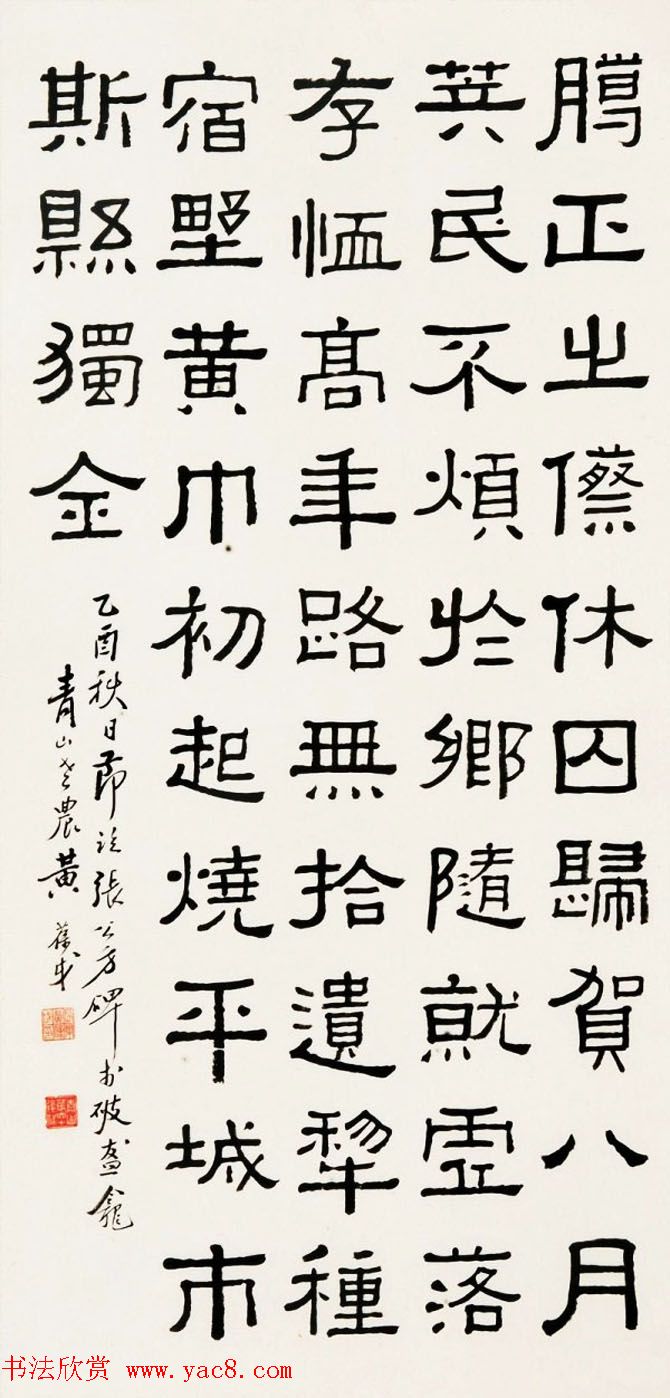 臈正之傺休囚歸賀八月
筭民不煩於鄉隨就虛落
存恤高年路無拾遺犁種
宿墅黃巾初起燒平城市
斯縣獨全
乙酉秋日節臨張公方碑於破盉龕
青山老農黃葆戉
书法欣赏 www.yac8.com